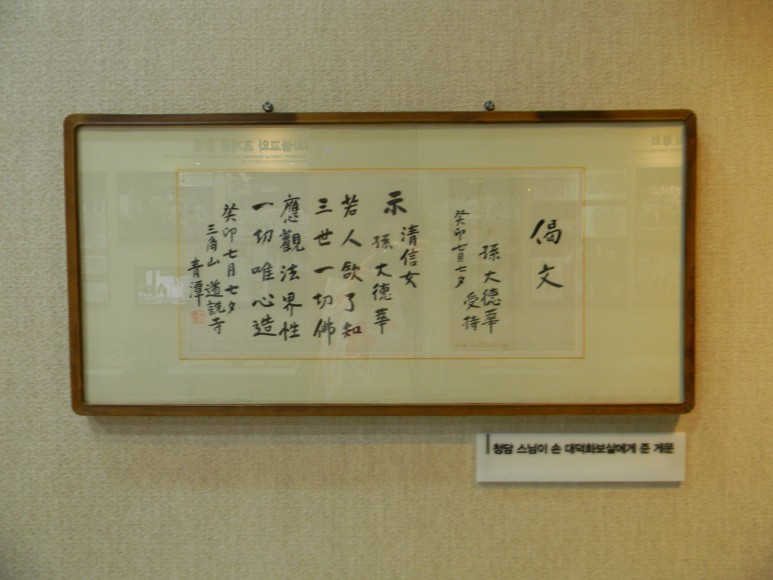 偈文
孫大德華
受持
癸卯七月七夕
示
清信女
孫大德華
若人欲了知
三世一切佛
應觀法界性
一切唯心造
癸卯七月七夕
三角山 道詵寺
青潭
청담 스님이 손 대덕화보살에게 준 게문